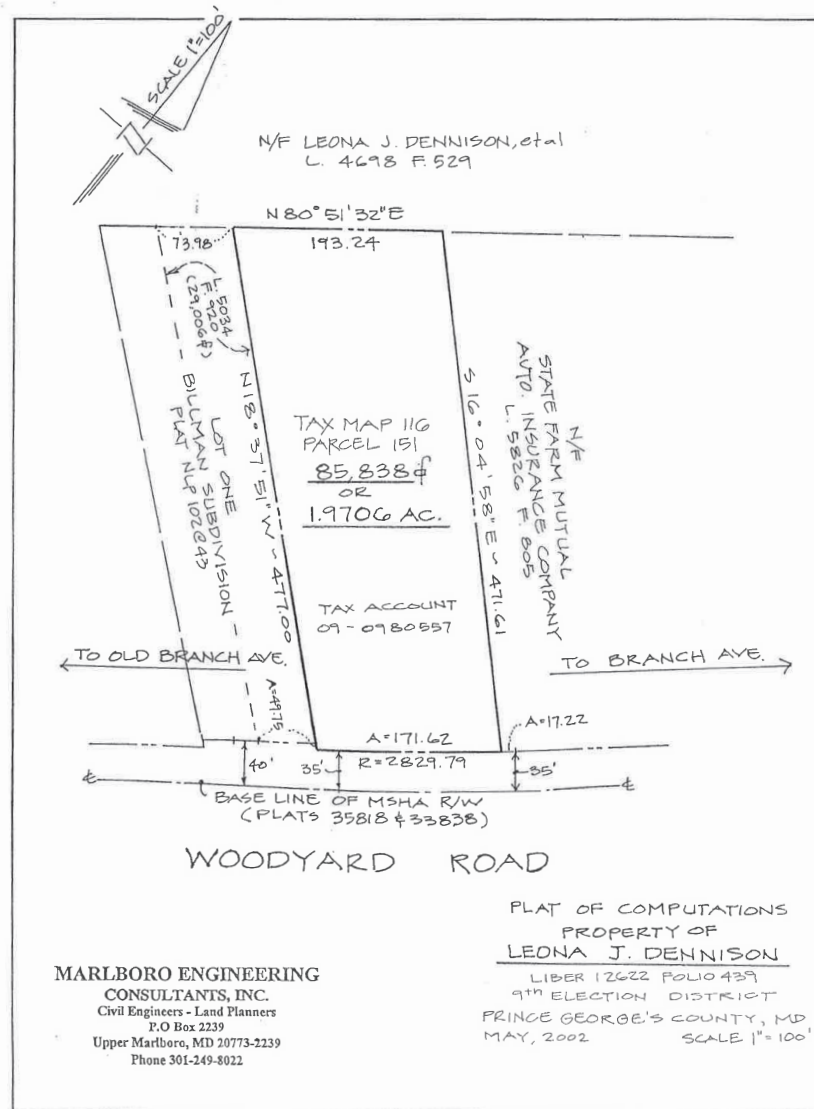 SCALE 1"=100'
N/F LEONA J. DENNISON, etal
L. 4698 F. 529
N 80° 51' 32" E
73.98
193.24
L. 5034
F. 920
(29,006⌗)
LOT ONE
BILLMAN SUBDIVISION
PLAT NLP 102@43
N 18° 37' 51" W ~ 477.00
TAX MAP 116
PARCEL 151
85,838⌗
OR
1.9706 AC.
TAX ACCOUNT
09-0980557
S 16° 04' 58" E ~ 471.61
N/F
STATE FARM MUTUAL
AUTO. INSURANCE COMPANY
L. 5826 F. 805
TO OLD BRANCH AVE.
TO BRANCH AVE.
A=49.75
A=171.62
A=17.22
40'
35'
R=2829.79
35'
℄
℄
BASE LINE OF MSHA R/W
(PLATS 35818 & 33838)
WOODYARD ROAD
PLAT OF COMPUTATIONS
PROPERTY OF
LEONA J. DENNISON
LIBER 12622 FOLIO 439
9th ELECTION DISTRICT
PRINCE GEORGE'S COUNTY, MD
MAY, 2002 SCALE 1"=100'
MARLBORO ENGINEERING
CONSULTANTS, INC.
Civil Engineers - Land Planners
P.O Box 2239
Upper Marlboro, MD 20773-2239
Phone 301-249-8022